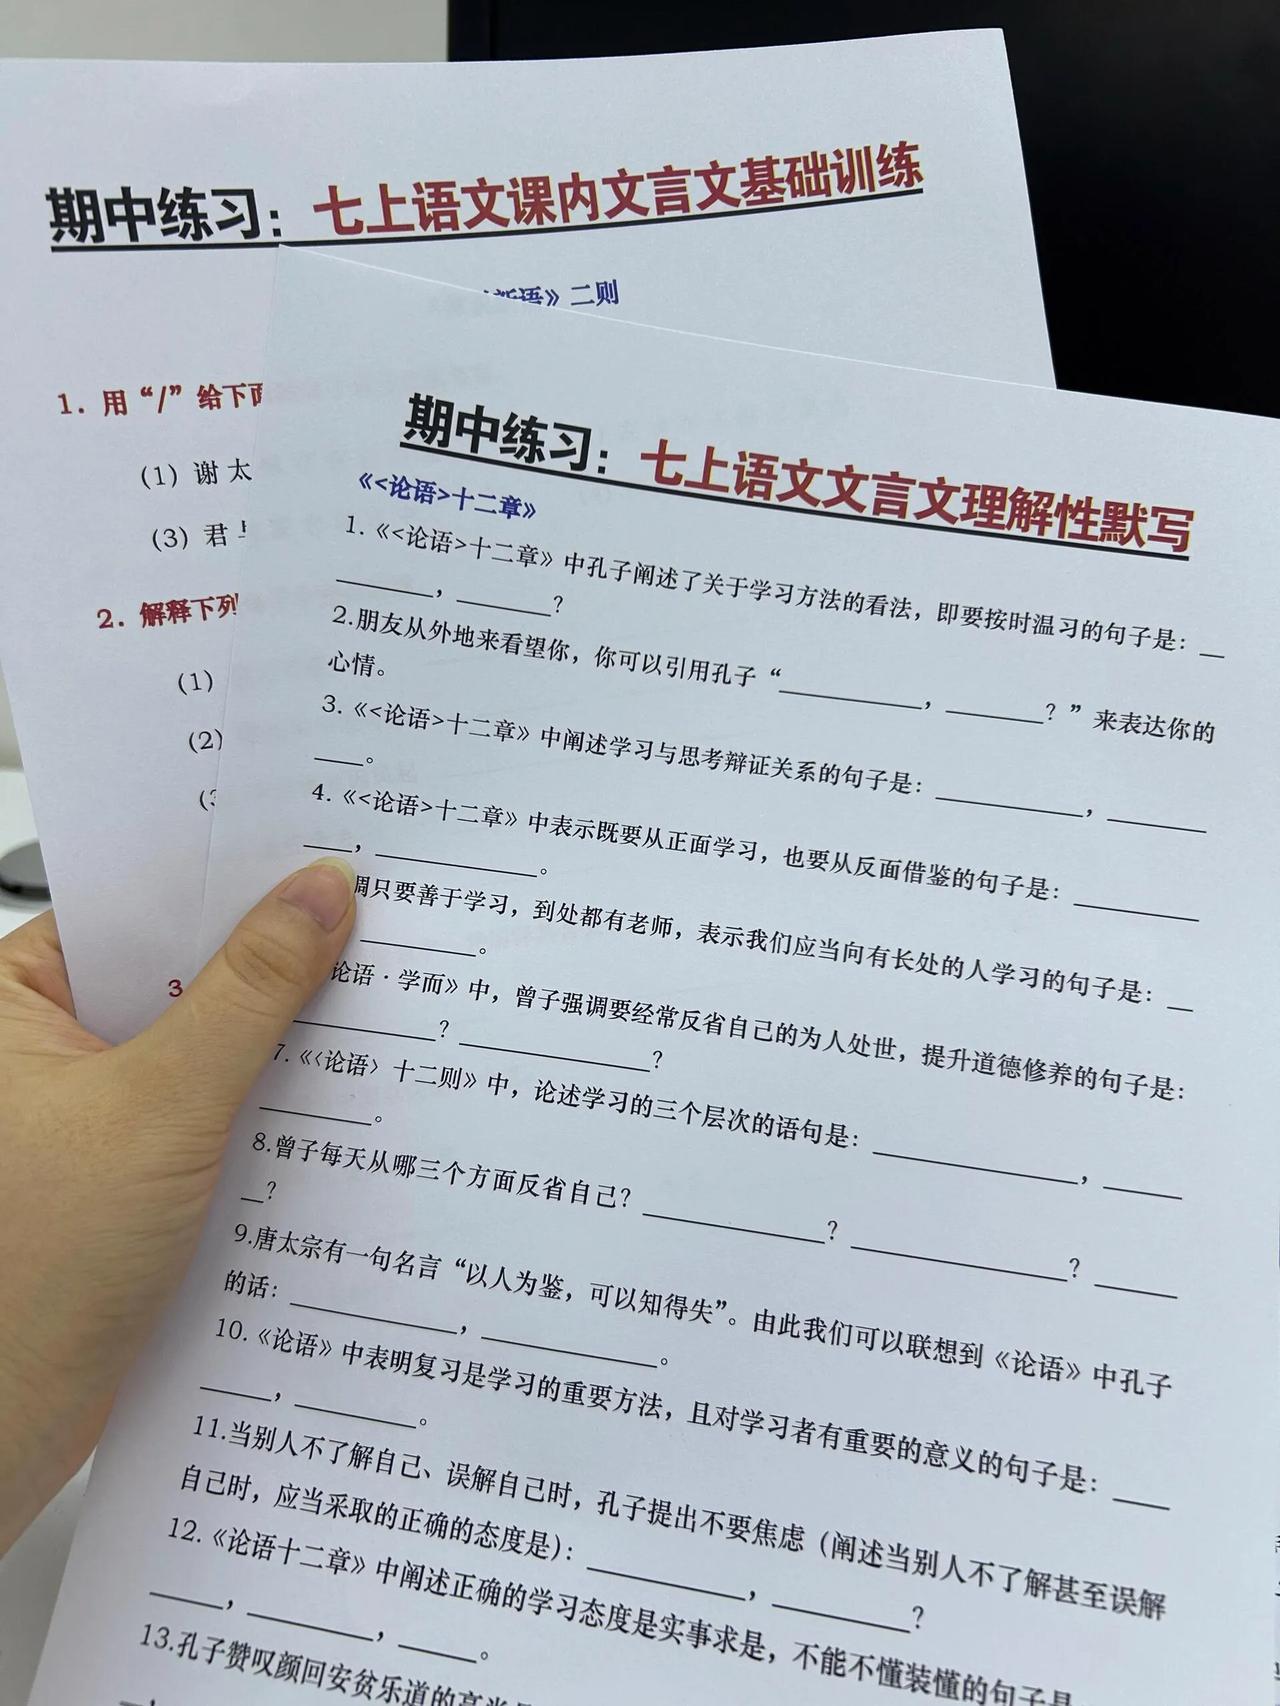 期中练习：七上语文课内文言文基础训练
语》二则
1. 用“/”给下面
(1) 谢 太
(3) 君
2. 解释下列
(1)
(2)
3
期中练习：七上语文文言文理解性默写
《<论语>十二章》
1. 《<论语>十二章》中孔子阐述了关于学习方法的看法，即要按时温习的句子是：__
________，________？
2.朋友从外地来看望你，你可以引用孔子“____________，________？”来表达你的
心情。
3. 《<论语>十二章》中阐述学习与思考辩证关系的句子是：____________，________
____。
4.《<论语>十二章》中表示既要从正面学习，也要从反面借鉴的句子是：__________
____，_____________。
调只要善于学习，到处都有老师，表示我们应当向有长处的人学习的句子是：__
_________。
论语·学而》中，曾子强调要经常反省自己的为人处世，提升道德修养的句子是：
___________？_______________？
7.《〈论语〉十二则》中，论述学习的三个层次的语句是：_________________，______
_________。
8.曾子每天从哪三个方面反省自己？_______________？__________________？_______
__？
9.唐太宗有一句名言“以人为鉴，可以知得失”。由此我们可以联想到《论语》中孔子
的话：______________，______________。
10.《论语》中表明复习是学习的重要方法，且对学习者有重要的意义的句子是：____
______，__________。
11.当别人不了解自己、误解自己时，孔子提出不要焦虑（阐述当别人不了解甚至误解
自己时，应当采取的正确的态度是)：_____________，___________？
12.《论语十二章》中阐述正确的学习态度是实事求是，不能不懂装懂的句子是
______，__________，______。
13.孔子赞叹颜回安贫乐道的高尚